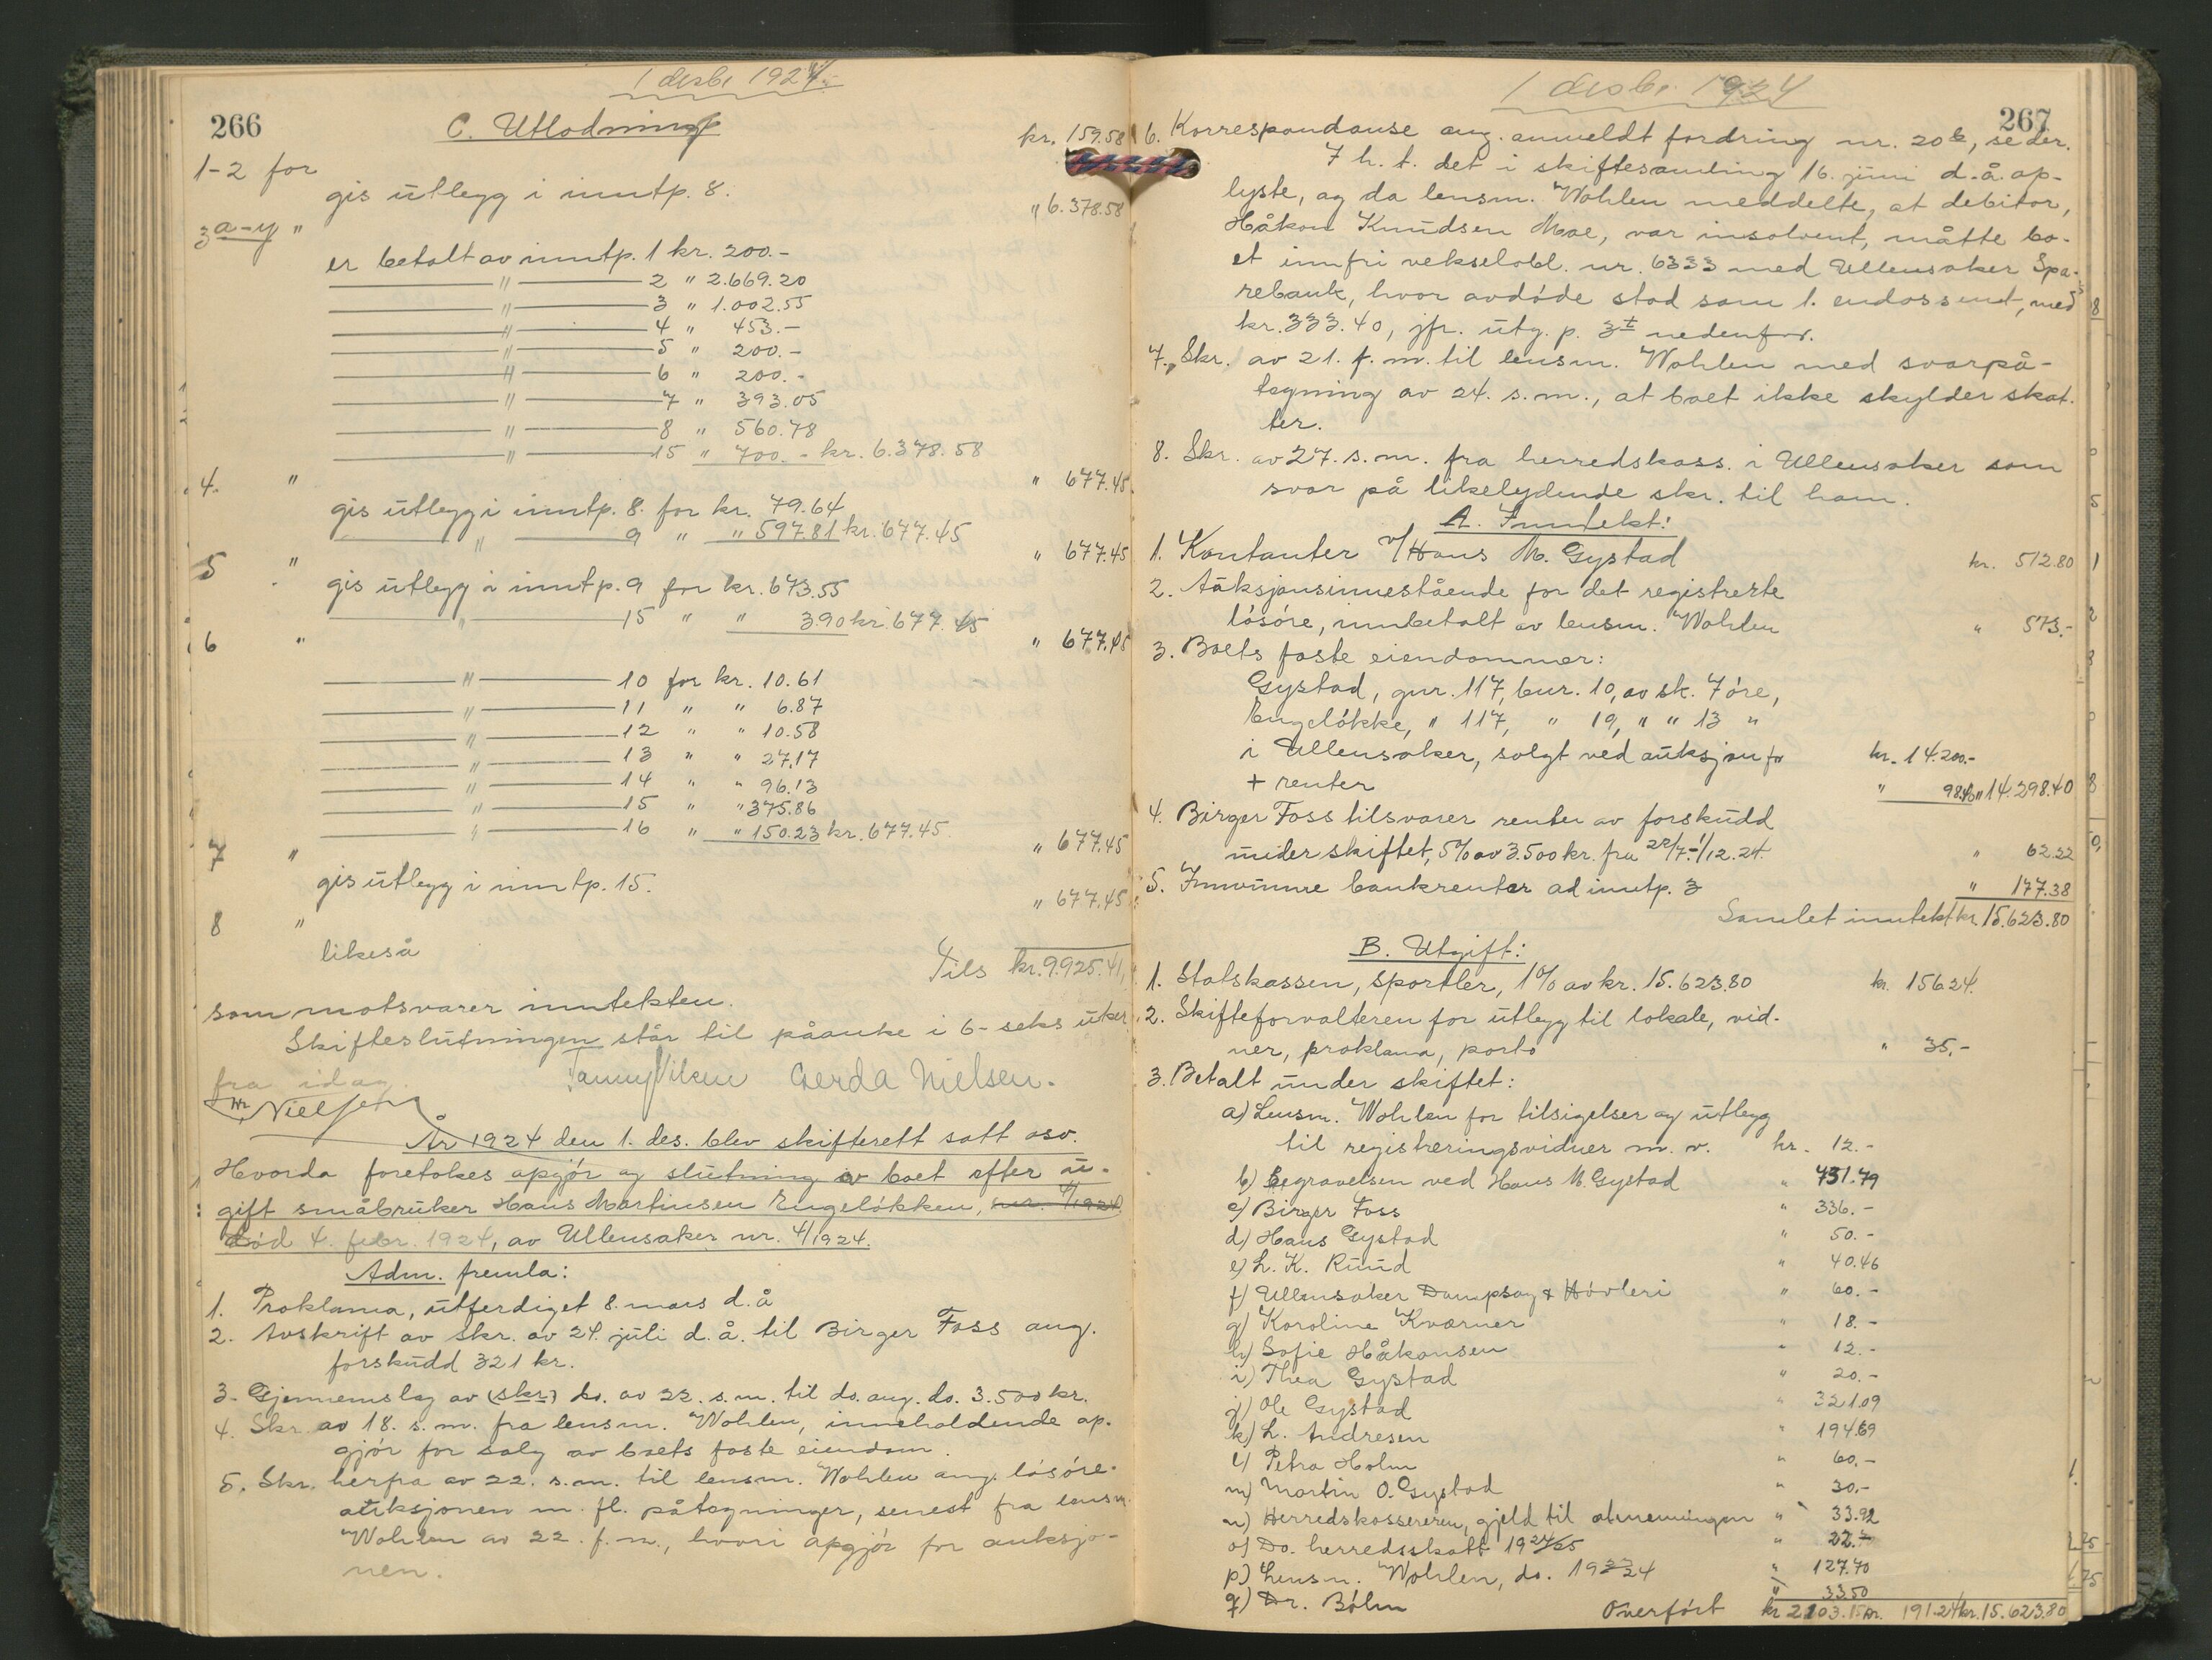 1 desbr 1924.
266
C. Utlodning
1-2 for kr. 159.58
gis utlegg i inntp. 8.
3 a-y " " 6.378.58
er betalt av inntp. 1 kr. 200.-
" 2 " 2.669.20
" 3 " 1.002.55
" 4 " 453.-
" 5 " 200.-
" 6 " 200.-
" 7 " 393.05
" 8 " 560.78
" 15 " 700.- kr. 6.378.58
4. " " 677.45
gis utlegg i inntp. 8. for kr. 79.64
" 9 " " 597.81 kr. 677.45
5 " " 677.45
gis utlegg i inntp. 9 for kr. 673.55
" 15 " " 3.90 kr. 677.45
6 " " 677.45
" 10 for kr. 10.61
" 11 " " 6.87
" 12 " " 10.58
" 13 " " 27.17
" 14 " " 96.13
" 15 " " 375.86
" 16 " " 150.23 kr. 677.45
7 " " 677.45
gis utlegg i inntp. 15.
8 " " 677.45
likeså
Tils kr. 9.925.41,
som motsvarer inntekten.
Skifteslutningen står til påanke i 6-seks uker
fra idag.
Gerda Nielsen.
Nielsen
År 1924 den 1. des. blev skifterett satt osv.
Hvorda foretokes opgjør og slutning av boet efter u-
gift småbruker Hans Martinsen Engeløkken, nr. 4/1924
død 4. febr. 1924, av Ullensaker nr. 4/1924.
Adm. fremla:
1. Proklama, utferdiget 8. mars d.å
2. Avskrift av skr. av 24. juli d.å. til Birger Foss ang.
forskudd 321 kr.
3. Gjennemslag av (skr.) do. av 22. s.m. til do. ang. do. 3.500 kr.
4. Skr. av 18. s.m. fra lensm. Wohlen, inneholdende op-
gjør for salg av boets faste eiendom.
5. Skr. herfra av 22. s.m. til lensm. Wohlen ang. løsøre-
auksjonen m. fl. påtegninger, senest fra lensm.
Wohlen av 22. f.m., hvori opgjør for auksjo-
nen.
1 desbr. 1924
267
6. Korrespondanse ang. anmeldt fordring nr. 20b, se der.
7 h. t. det i skiftesamling 16. juni d.å. op-
lyste, og da lensm. Wohlen meddelte, at debitor,
Håkon Knudsen Moe, var insolvent, måtte bo-
et innfri vekselobl. nr. 6333 med Ullensaker Spa-
rebank, hvor avdøde stod som 1. endossent, med
kr. 333.40, jfr. utg. p. 3t nedenfor.
7. Skr. av 21. f.m. til lensm. Wohlen med svarpå-
tegning av 24. s.m., at boet ikke skylder skat-
ter.
8. Skr. av 27. s.m. fra herredskass. i Ullensaker som
svar på likelydende skr. til ham.
A. Inntekt:
1. Kontanter v/Hans M. Gystad kr. 512.80
2. Auksjonsinnestående for det registrerte
løsøre, innbetalt av lensm. Wohlen " 573.-
3. Boets faste eiendommer:
Gystad, gnr. 117, bnr. 10, av sk. 7 øre,
Engeløkke, " 117, " 19, " " 13 "
i Ullensaker, solgt ved auksjon for kr. 14.200.-
+ renter " 98.40 " 14.298.40
4. Birger Foss tilsvarer renter av forskudd
under skiftet, 5% av 3.500 kr. fra 22/7-1/12.24. " 62.22
5. Innvunne bankrenter ad inntp. 3 " 177.38
Samlet inntekt kr. 15.623.80
B. Utgift:
1. Statskassen, sportler, 1% av kr. 15.623.80 kr. 156.24.
2. Skifteforvalteren for utlegg til lokale, vid-
ner, proklama, porto " 35,-
3. Betalt under skiftet:
a) Lensm. Wohlen for tilsigelser og utlegg
til registreringsvidner m. v. kr. 12.-
b) Begravelsen ved Hans M. Gystad " 731.79
c) Birger Foss " 336.-
d) Hans Gystad " 50.-
e) L. K. Ruud " 40.46
f) Ullensaker Dampsag & Høvleri " 60.-
g) Karoline Kværner " 18.-
h) Sofie Håkonsen " 12.-
i) Thea Gystad " 20.-
j) Ole Gystad " 321.09
k) L. Andresen " 194.69
l) Petra Holm " 60.-
m) Martin O. Gystad " 30.-
n) Herredskassereren, gjeld til almenningen " 33.92
o) Do. herredsskatt 1924/25 " 22.-
p) Lensm. Wohlen, do. 1923/24 " 127.70
q) Dr. Bølm " 33.50
Overført kr 2103.15 kr. 191.24 kr. 15.623.80